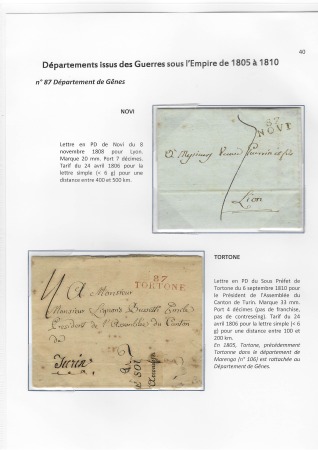 40
Départements issus des Guerres sous l'Empire de 1805 à 1810
n° 87 Département de Gênes
NOVI
Lettre en PD de Novi du 8
novembre 1808 pour Lyon.
Marque 20 mm. Port 7 décimes.
Tarif du 24 avril 1806 pour la
lettre simple (< 6 g) pour une
distance entre 400 et 500 km.
87
NOVI
à Messieurs
7
Lion
TORTONE
Lettre en PD du Sous Préfet de
Tortone du 6 septembre 1810 pour
le Président de l'Assemblée du
Canton de Turin. Marque 33 mm.
Port 4 décimes (pas de franchise,
pas de contreseing). Tarif du 24
avril 1806 pour la lettre simple (< 6
g) pour une distance entre 100 et
200 km.
En 1805, Tortone, précédemment
Tortonne dans le département de
Marengo (n° 106) est rattachée au
Département de Gênes.
87
TORTONE
A Monsieur
Monsieur
Président de l'Assemblée du Canton
de
Turin